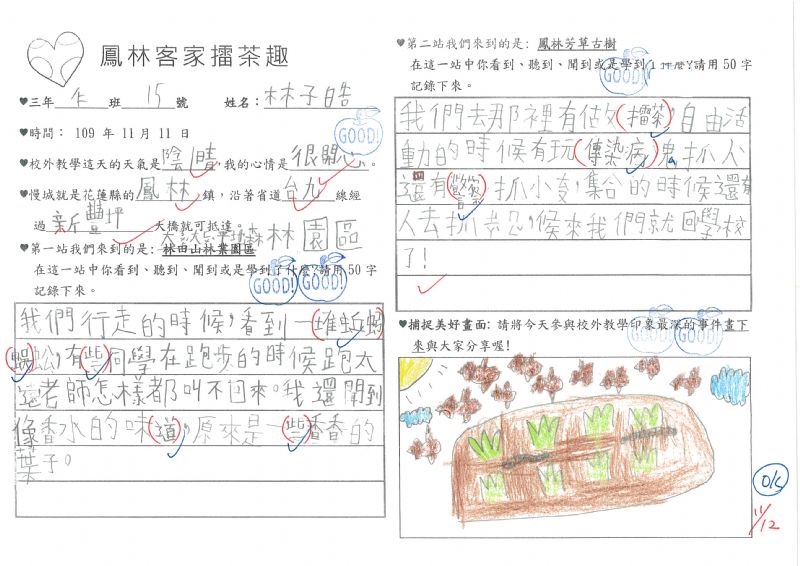 鳳林客家擂茶趣
♥三年 仁 班 15 號 姓名: 林子皓
♥時間: 109 年 11 月 11 日
♥校外教學這天的天氣是 陰晴 ,我的心情是 很開心 。
♥慢城就是花蓮縣的 鳳林 鎮, 沿著省道 台九 線經
過 新豐坪 天橋就可抵達。
♥第一站我們來到的是: 林田山林業園區
林園區
在這一站中你看到、聽到、聞到或是學到了什麼?請用 50 字
記錄下來。
GOOD! GOOD!
我們行走的時候,看到一堆蚯蚓
蜈蚣,有些同學在跑步的時候跑太
遠老師怎樣都叫不回來。我還聞到
像香水的味道,原來是一些香香的
葉子。
♥第二站我們來到的是: 鳳林芳草古樹
在這一站中你看到、聽到、聞到或是學到了什麼?請用 50 字
記錄下來。
GOOD!
我們去那裡有做擂茶,自由活
動的時候有玩傳染病鬼抓人
還有 抓小 ,集合的時候還有
人去抓 ,候來我們就回學校
了!
♥捕捉美好畫面: 請將今天參與校外教學印象最深的事件畫下
來與大家分享喔!
GOOD!
O/K
11/12